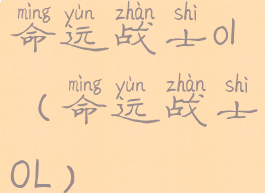 mìng yùn zhàn shì
命远战士Ol
mìng yùn zhàn shì
(命远战士
OL)